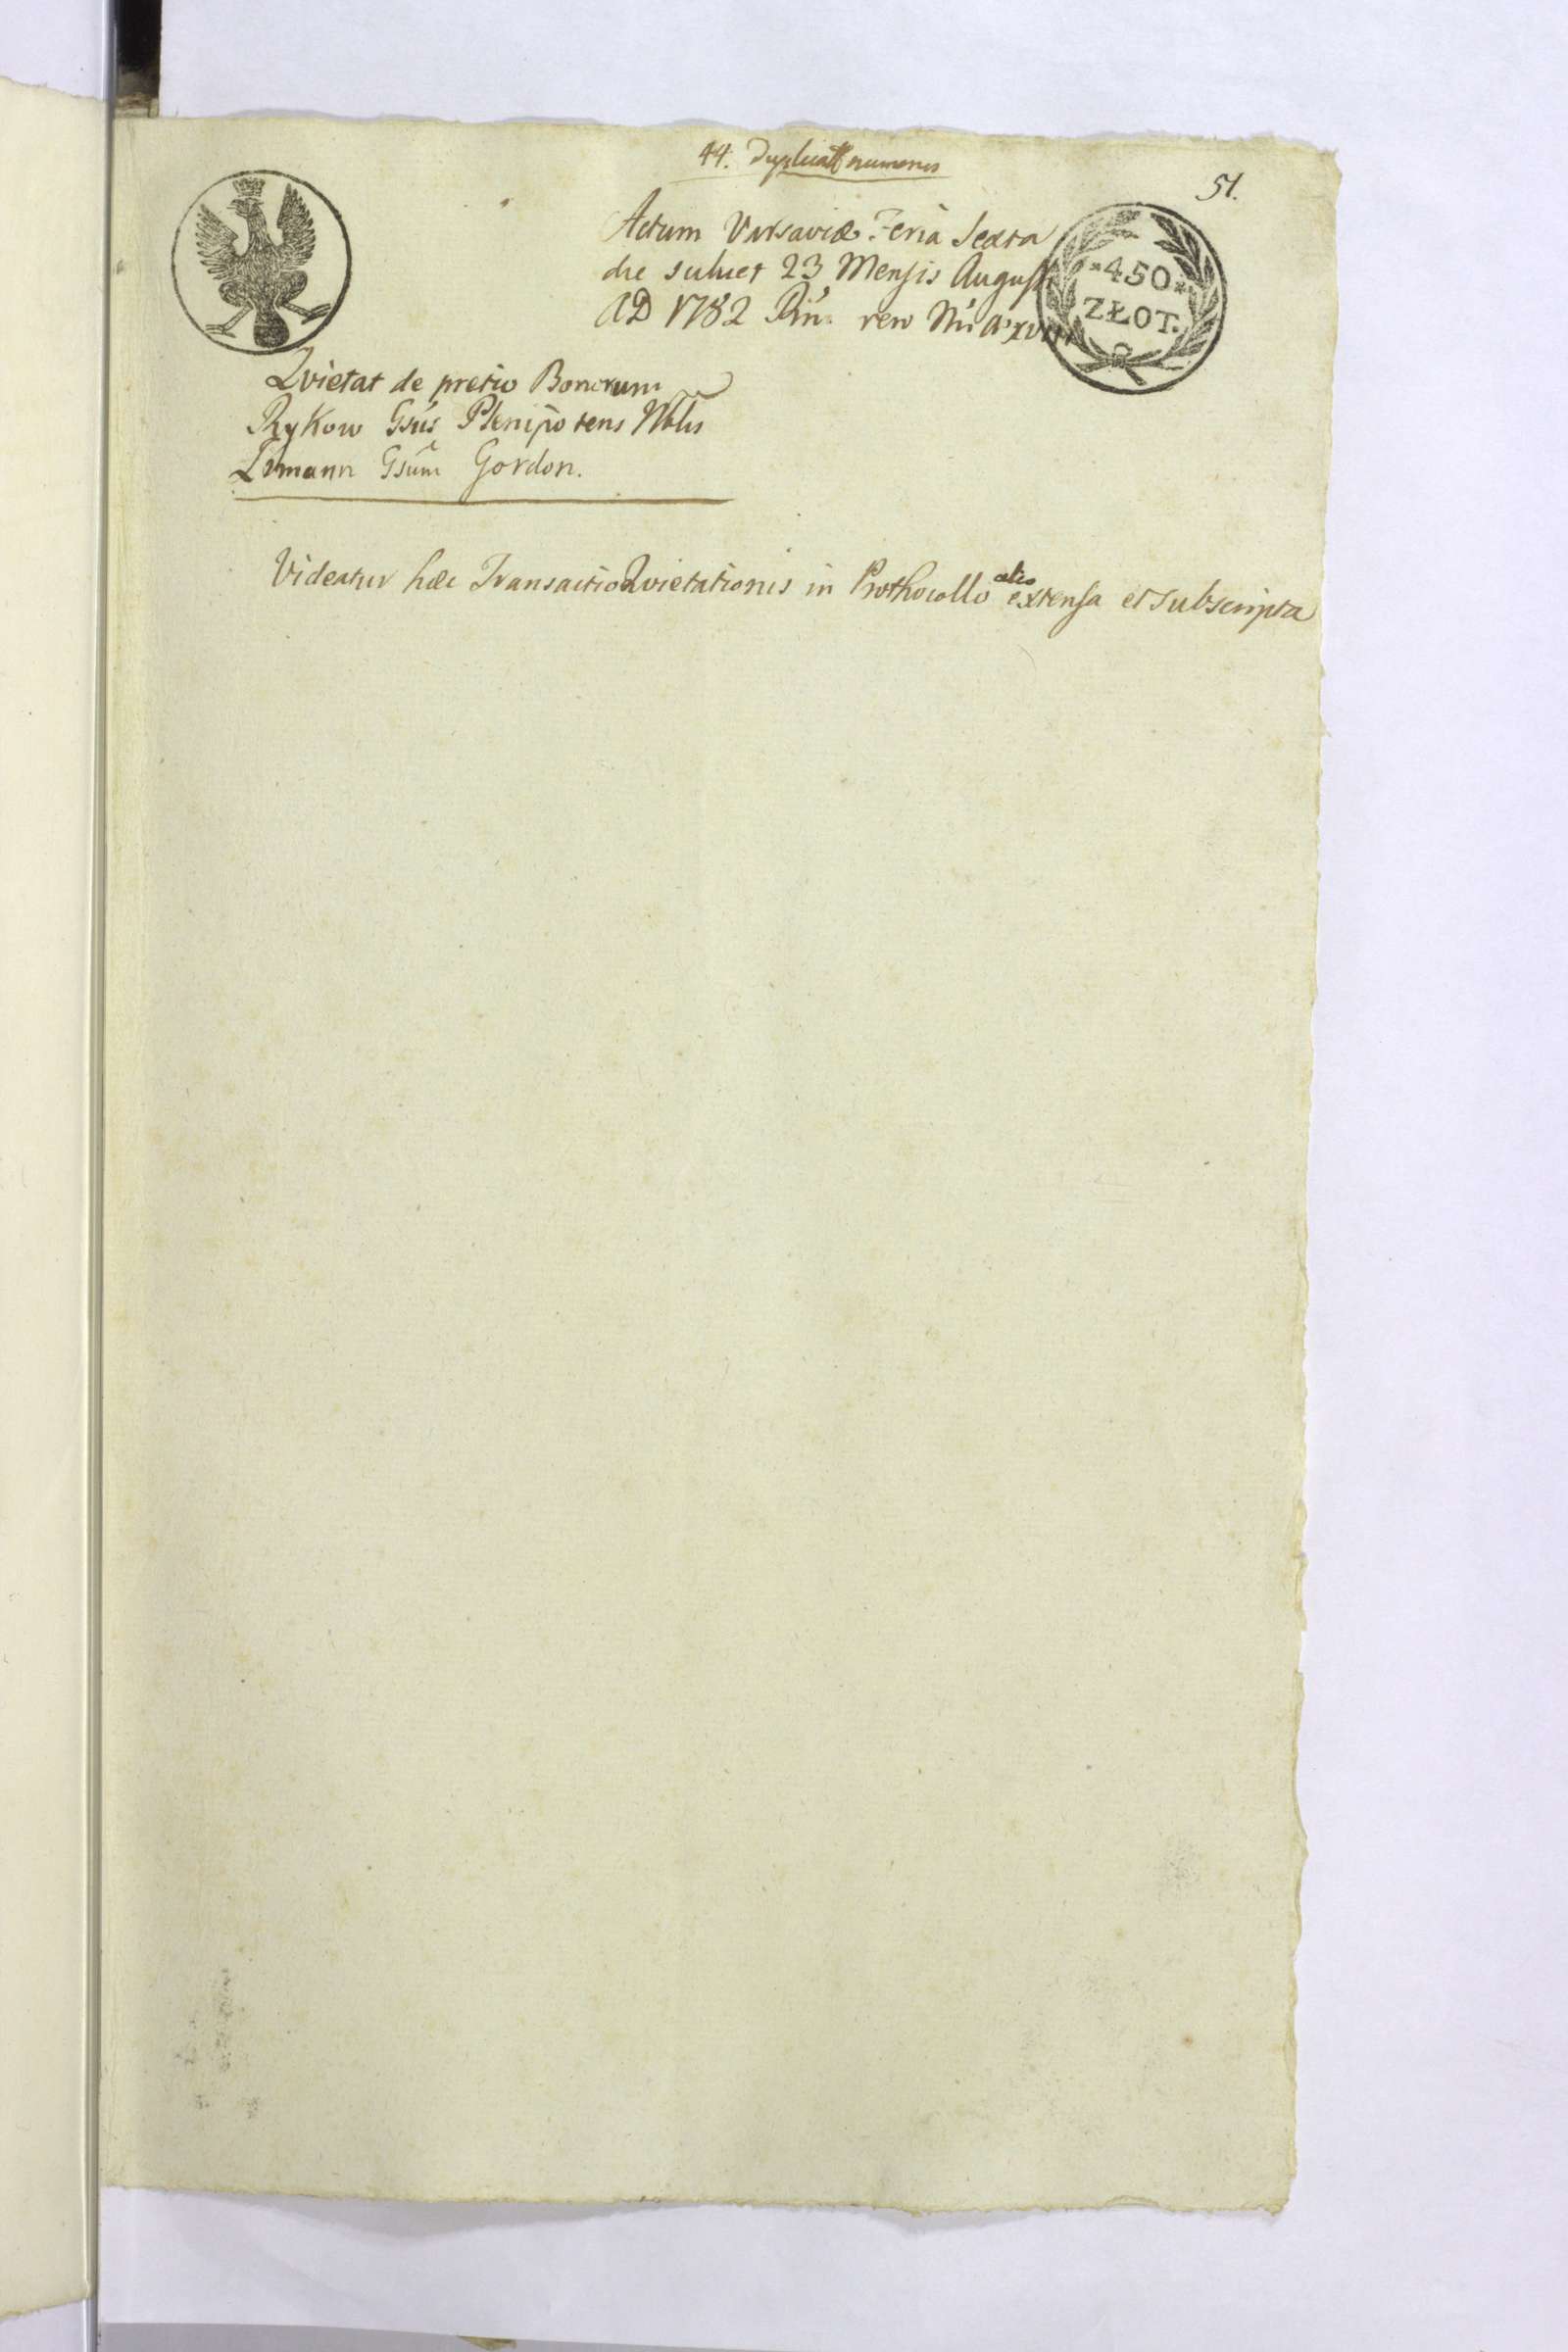 44. Duplicatt numerus
51.
Actum Varsaviæ Feria Sexta
die scilicet 23 Mensis Augusti
AD 1782 Rni vero Nri Aº XVIII
*450*
ZŁOT.
Qvietat de pretio Bonorum
Rykow Gsus Plenipotens Nblis
Lemann Gsum Gordon.
Videatur hæc Transactio Qvietationis in Prothocollo alio extensa et subscripta